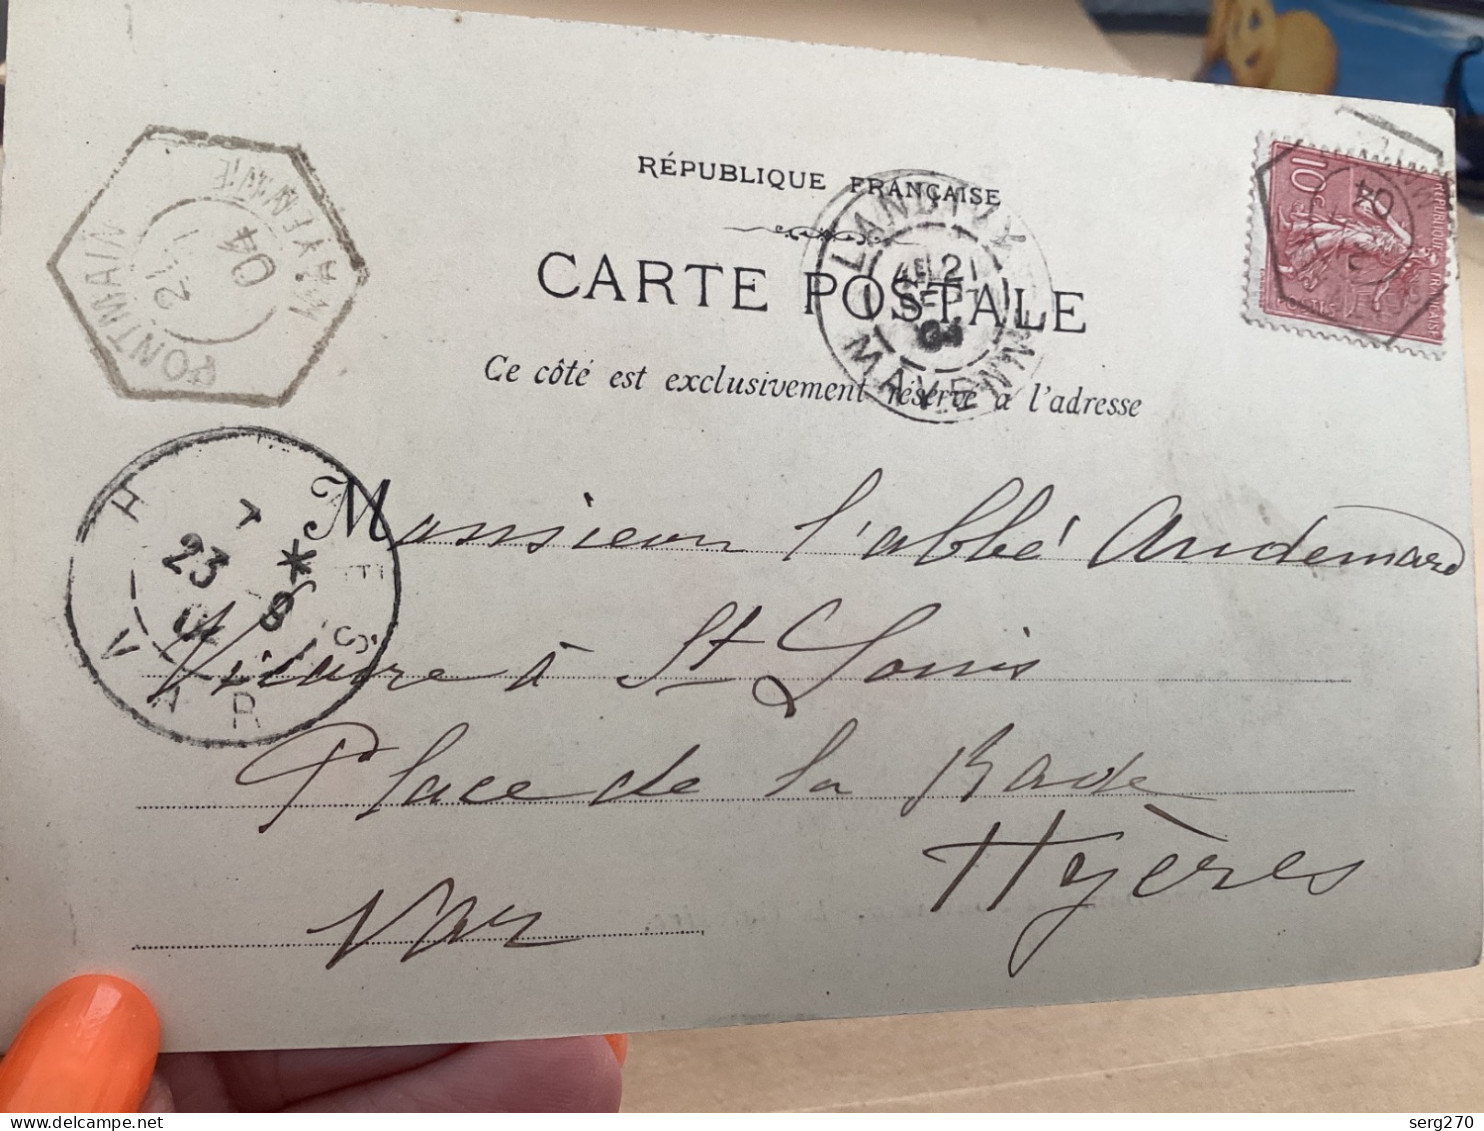 RÉPUBLIQUE FRANÇAISE
CARTE POSTALE
Ce côté est exclusivement réservé à l'adresse
PONTMAIN
MAYENNE
21
04
LANDIVY
21
SEPT
04
MAYENNE
10c
RÉPUBLIQUE FRANÇAISE
POSTES
04
HYÈRES
*
23
9
VAR
Monsieur l'abbé Audemard
Vicaire à St Louis
Place de la Rade
Hyères
Var
serg270